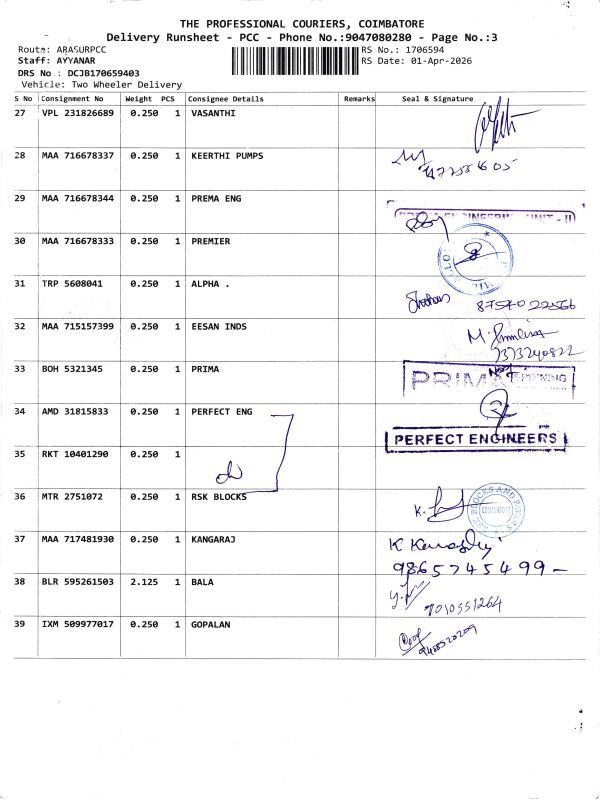 THE PROFESSIONAL COURIERS, COIMBATORE
Delivery Runsheet - PCC - Phone No.:9047080280 - Page No.:3
Route: ARASURPCC RS No.: 1706594
Staff: AYYANAR RS Date: 01-Apr-2026
DRS No.: DCJB170659403
Vehicle: Two Wheeler Delivery
S No Consignment No Weight PCS Consignee Details Remarks Seal & Signature
27 VPL 231826689 0.250 1 VASANTHI
28 MAA 716678337 0.250 1 KEERTHI PUMPS
29 MAA 716678344 0.250 1 PREMA ENG
UNIT - II
30 MAA 716678333 0.250 1 PREMIER
31 TRP 5608041 0.250 1 ALPHA .
32 MAA 715157399 0.250 1 EESAN INDS
7373240822
33 BOH 5321345 0.250 1 PRIMA
PRIMA
34 AMD 31815833 0.250 1 PERFECT ENG
PERFECT ENGINEERS
35 RKT 10401290 0.250 1
36 MTR 2751072 0.250 1 RSK BLOCKS
K.
BLOCKS AND PAVERS
COIMBATORE
37 MAA 717481930 0.250 1 KANGARAJ
9865745499
38 BLR 595261503 2.125 1 BALA
7010551264
39 IXM 509977017 0.250 1 GOPALAN